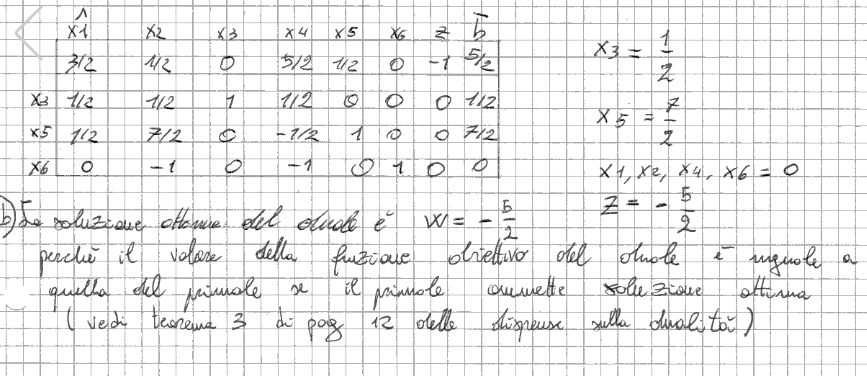 x̂1 x2 x3 x4 x5 x6 z b̄
3/2 1/2 0 5/2 1/2 0 -1 5/2
x3 1/2 1/2 1 1/2 0 0 0 1/2
x5 1/2 7/2 0 -1/2 1 0 0 7/2
x6 0 -1 0 -1 0 1 0 0
x3 = 1/2
x5 = 7/2
x1, x2, x4, x6 = 0
z = - 5/2
b) La soluzione ottima del duale è w = - 5/2
perchè il valore della funzione obiettivo del duale è uguale a
quella del primale se il primale ammette soluzione ottima
( vedi teorema 3 di pag 12 delle dispense sulla dualità )